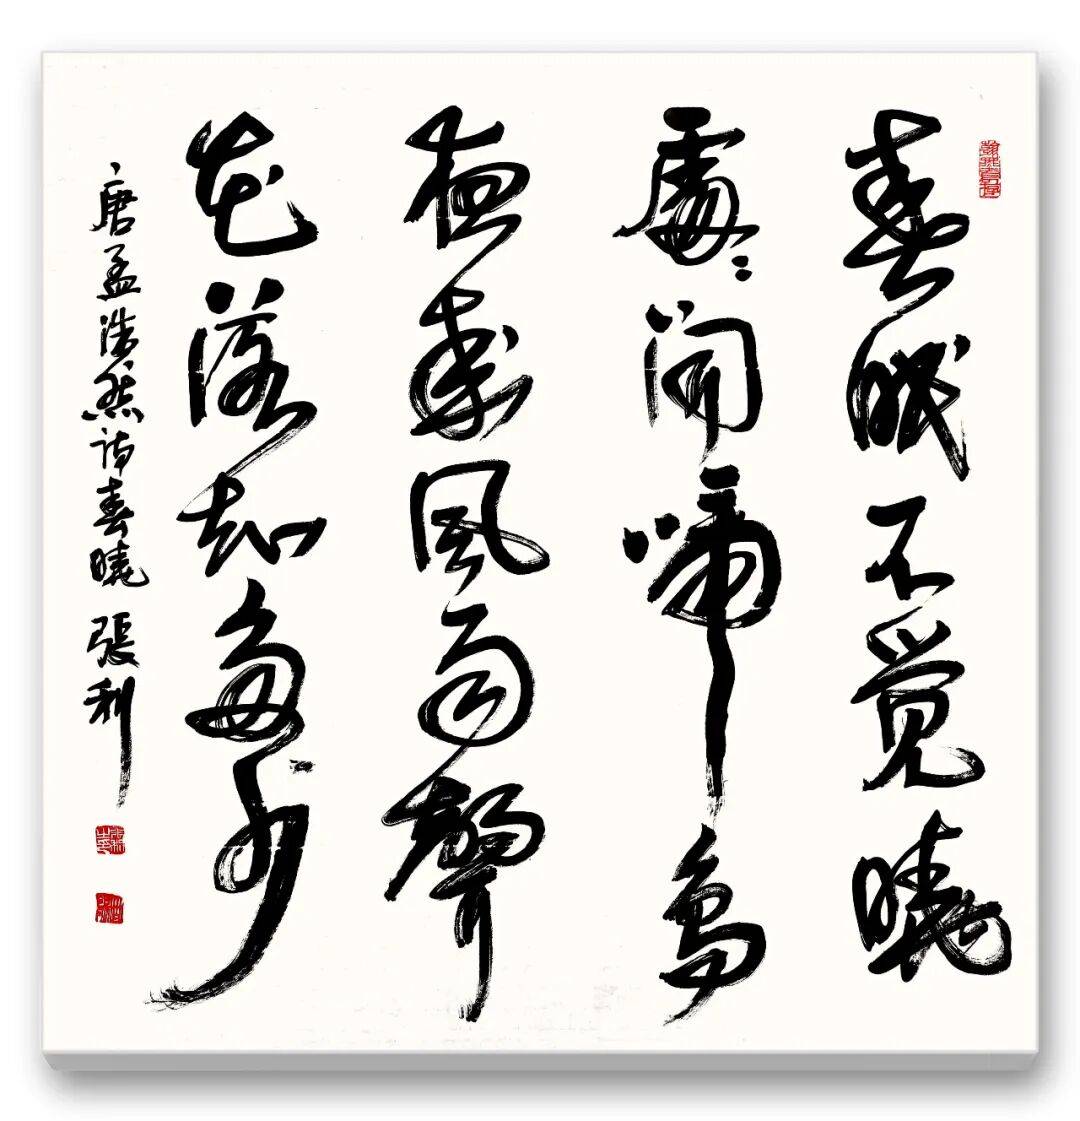 春眠不觉晓
處〻聞啼鸟
夜来风雨聲
花落知多少
唐孟浩然诗春曉
張利